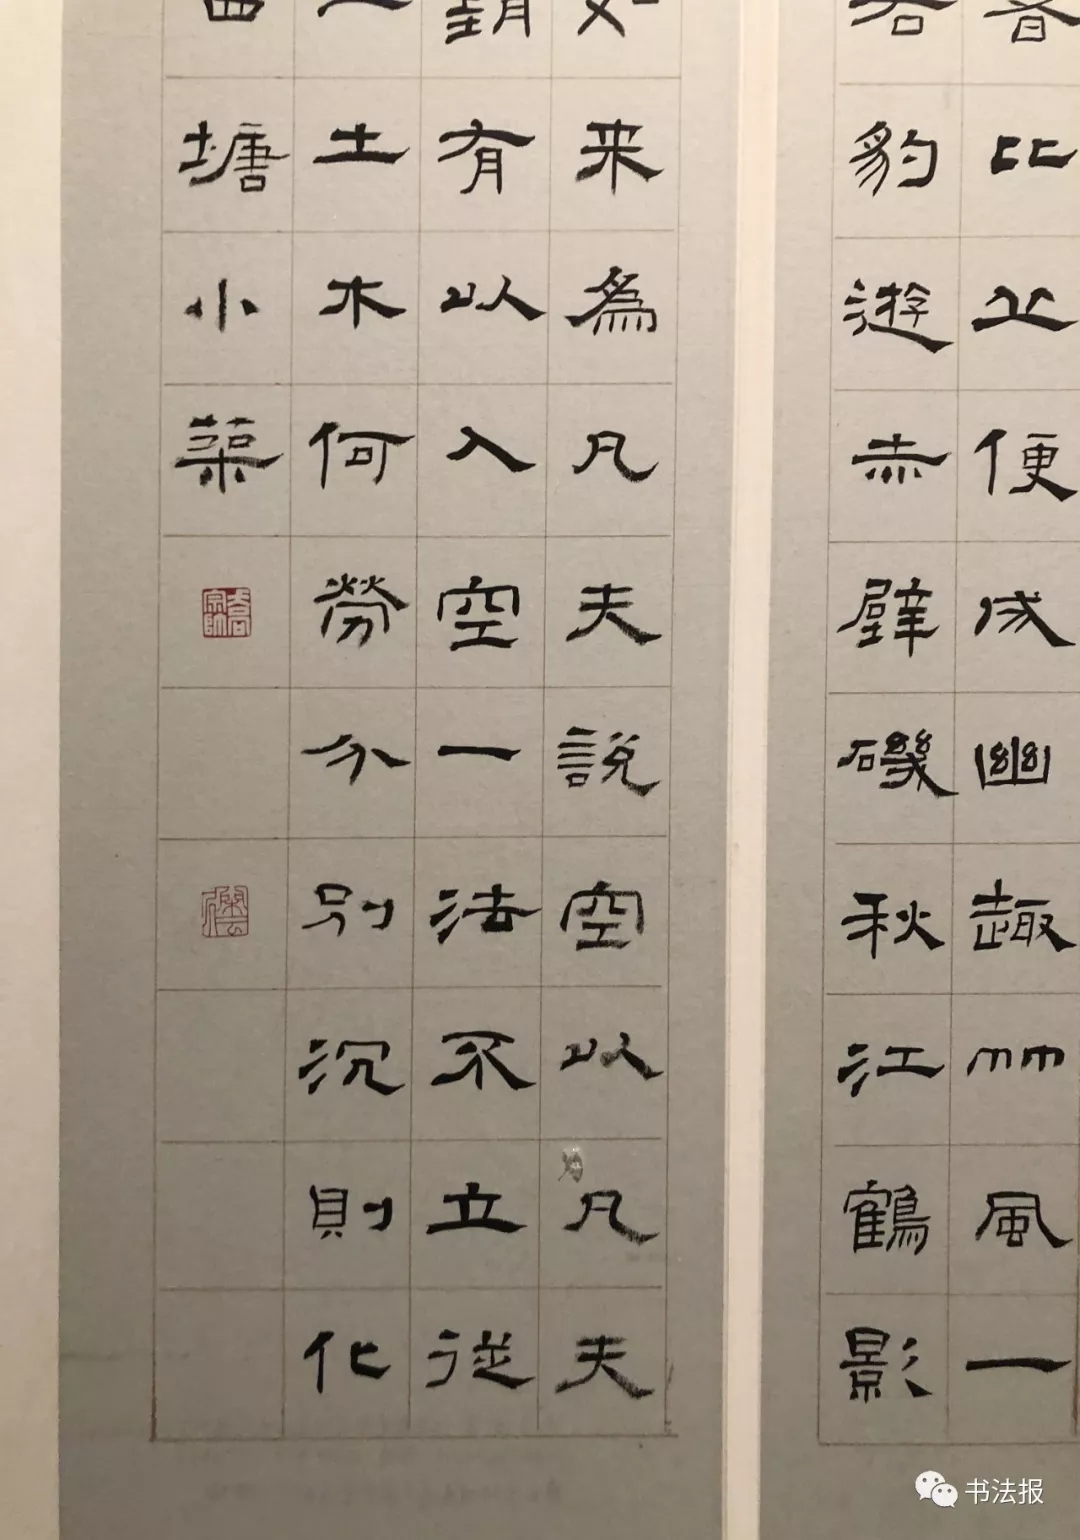 比之便成幽趣竹風一
豹遊赤壁磯秋江鶴影
如来為凡夫說空以凡夫
有以入空一法不立從
土木何勞分別沉則化
塘小築
书法报